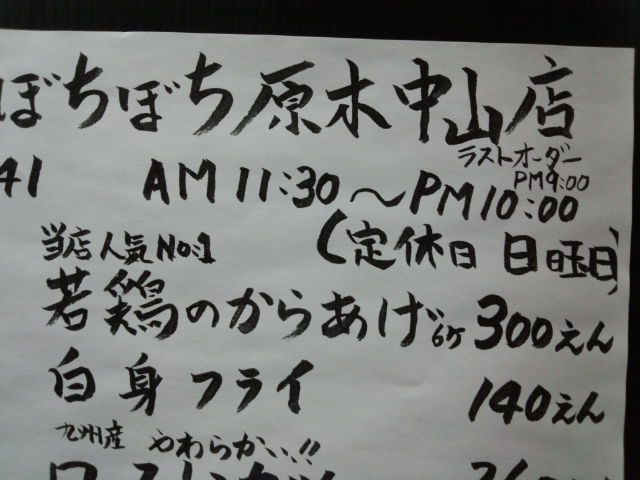 ぼちぼち原木中山店
ラストオーダー
PM9:00
41 AM11:30～PM10:00
(定休日 日曜日)
当店人気No:1
若鶏のからあげ6ケ 300えん
白身フライ 140えん
九州産 やわらかい!!